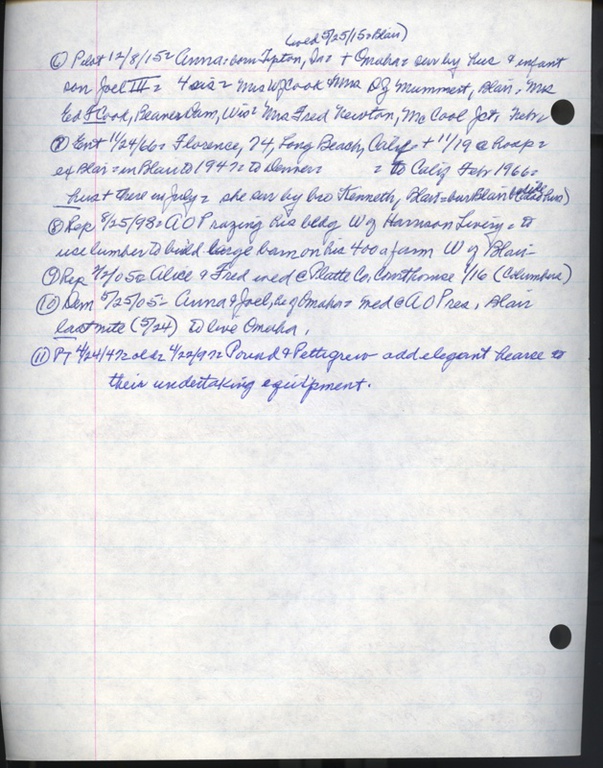 (wed 5/25/15 = Blair)
⑥ Pilot 12/8/15 = Anna = born Tipton, Ia = + Omaha = sur by hus & infant
son Joel III = 4 sis = Mrs WJ Cook & Mrs DJ Mummert, Blair, Mrs
Ed F Cook, Beaver Dam, Wis = Mrs Fred Newton, McCool Jct, Nebr
⑦ Ent 11/24/66 = Florence, 74, Long Beach, Calif + 11/19 @ hosp =
ex Blair = in Blair to 1947 = to Denver = = to Calif Feb 1966 =
hus + there in July = she sur by bro Kenneth, Blair = bur Blair
⑧ Rep 8/25/98 = A O P razing his bldg W of Harrison Livery = to
use lumber to build large barn on his 400 a farm W of Blair
⑨ Rep 2/2/05 = Alice & Fred wed @ Platte Co Courthouse 1/16 (Columbus)
⑩ Dem 5/25/05 = Anna & Joel, Jr of Omaha = wed @ A O Pres, Blair
last nite (5/24) to live Omaha.
⑪ PT 4/24/47 = older 4/22/97 = Pound & Pettigrew add elegant hearse to
their undertaking equipment.